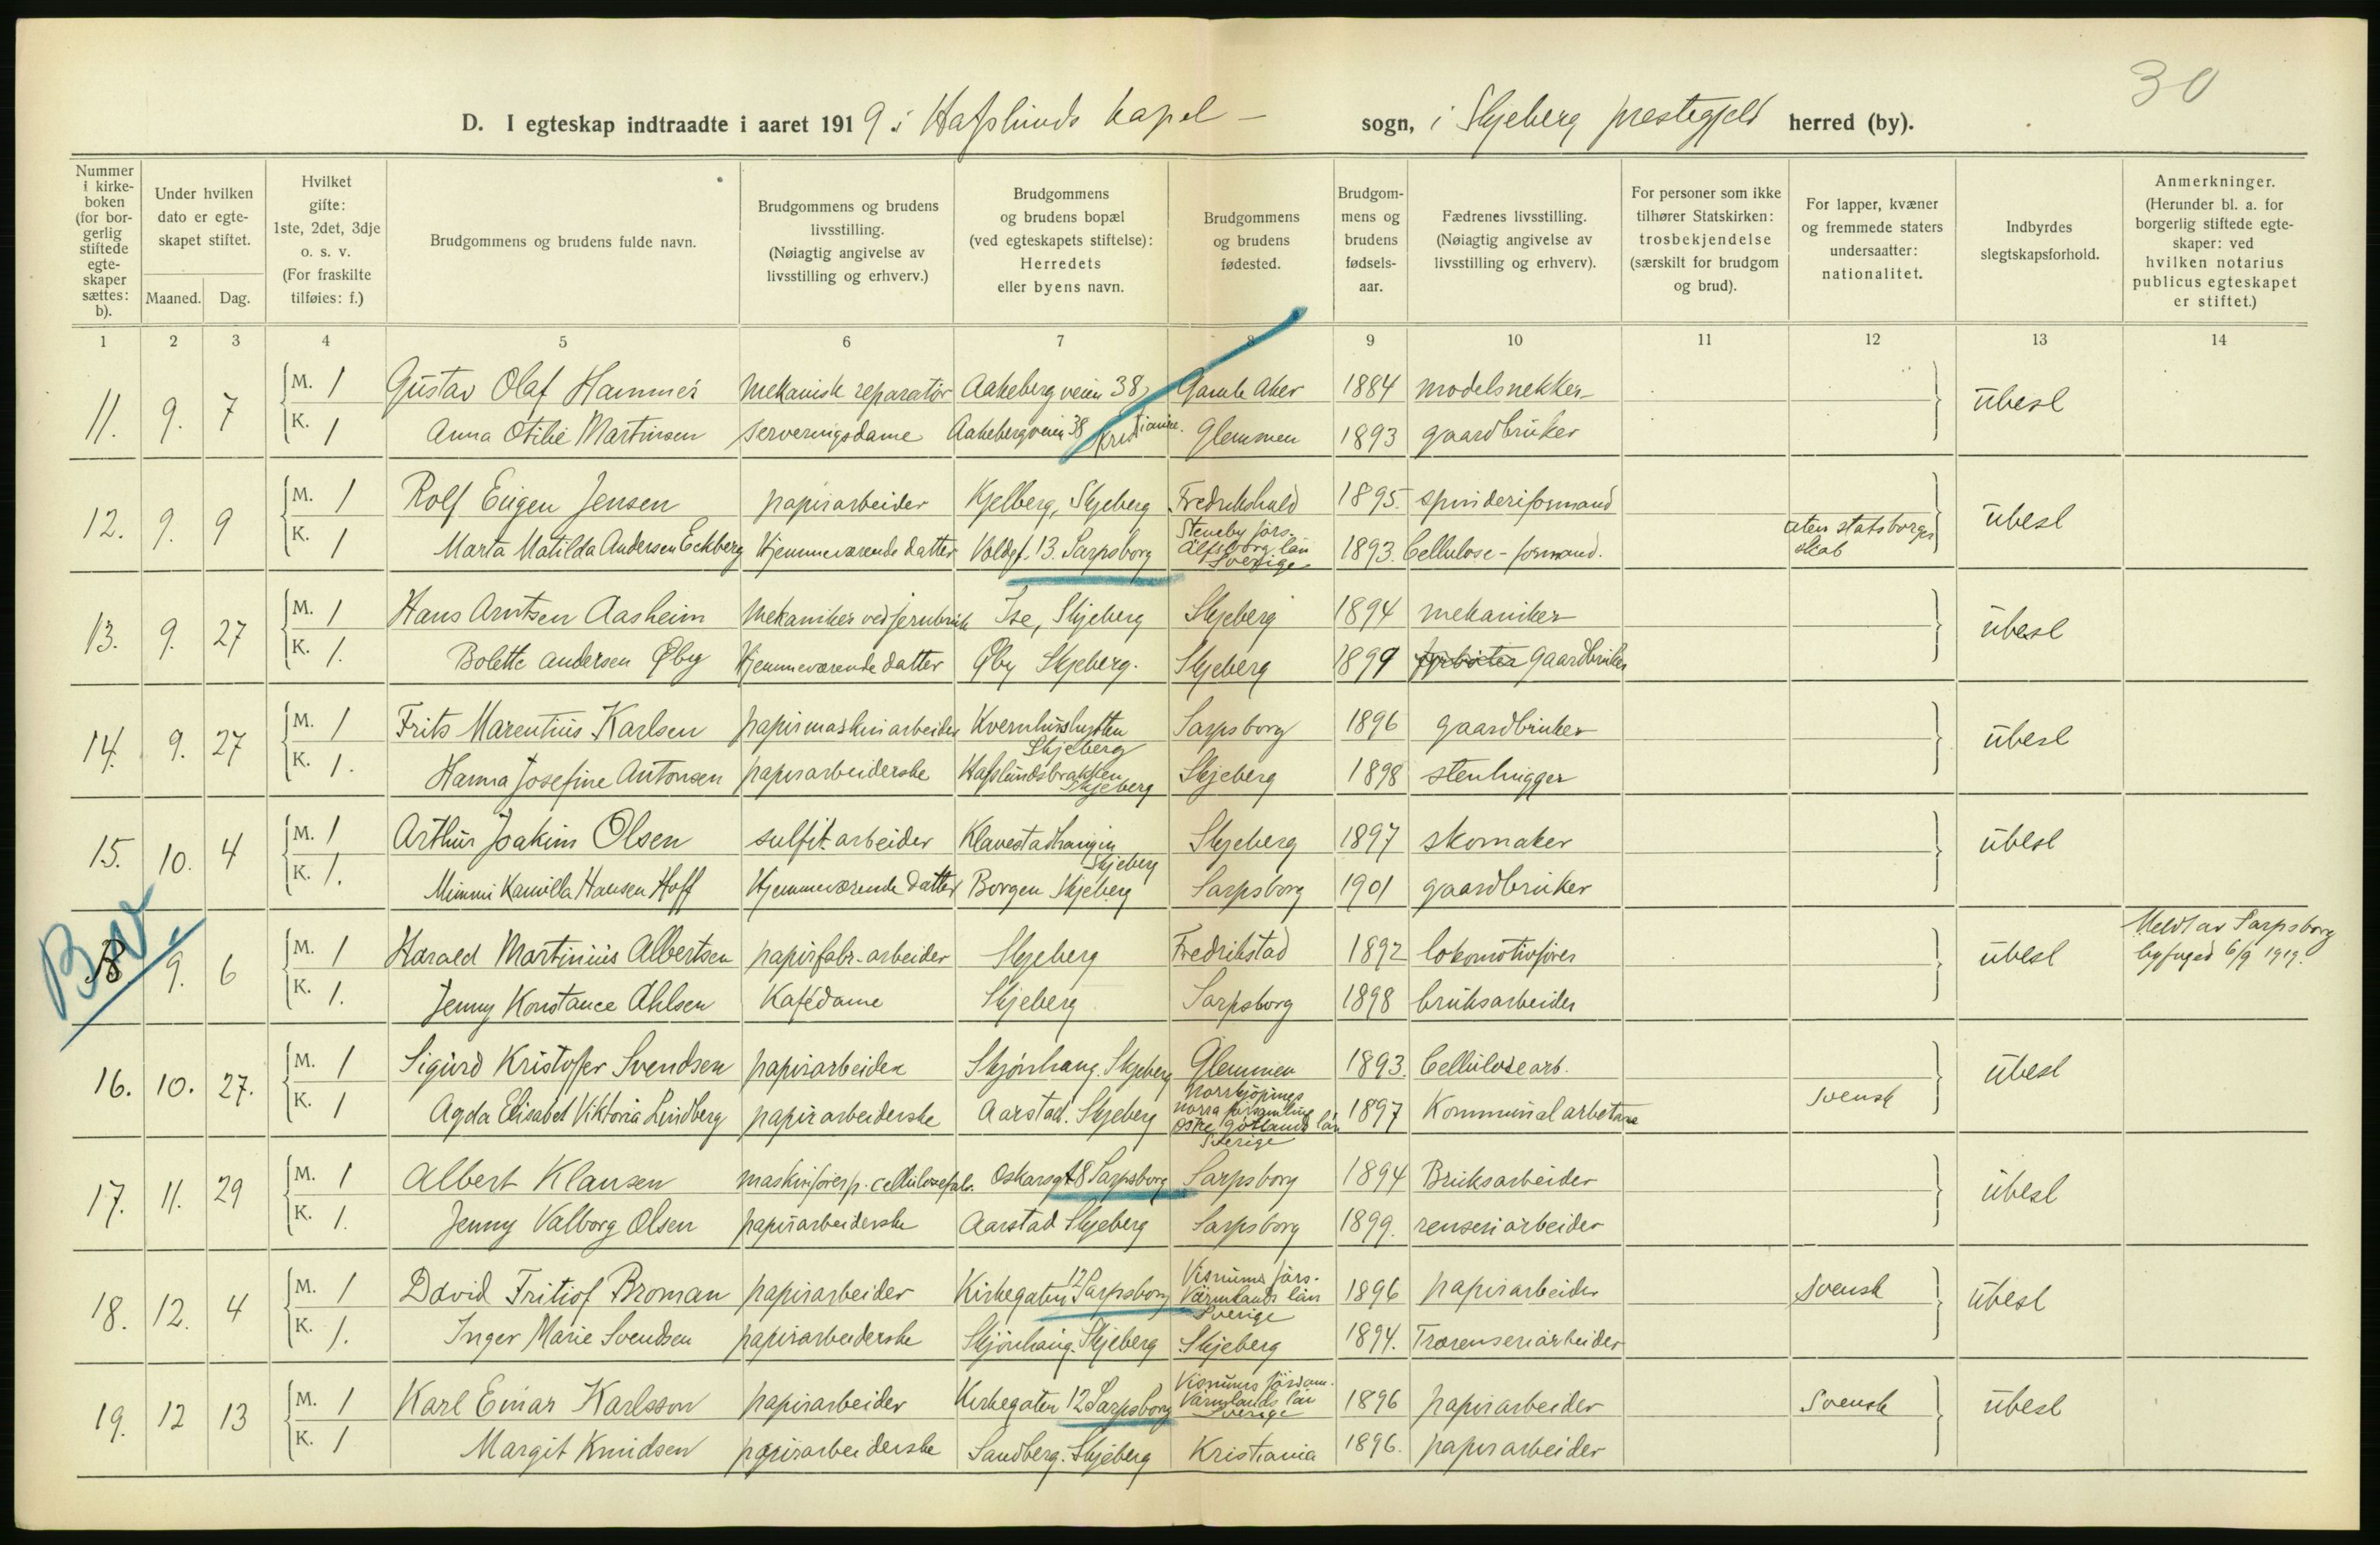 30
D. I egteskap indtraadte i aaret 1919 i Hafslunds kapel – sogn, i Skjeberg prestegjeld herred (by).
Nummer i kirkeboken (for borgerlig stiftede egteskaper sættes: b).
Under hvilken dato er egteskapet stiftet.
Maaned. Dag.
Hvilket gifte: 1ste, 2det, 3dje o. s. v. (For fraskilte tilføies: f.)
Brudgommens og brudens fulde navn.
Brudgommens og brudens livsstilling. (Nøiagtig angivelse av livsstilling og erhverv.)
Brudgommens og brudens bopæl (ved egteskapets stiftelse): Herredets eller byens navn.
Brudgommens og brudens fødested.
Brudgommens og brudens fødselsaar.
Fædrenes livsstilling. (Nøiagtig angivelse av livsstilling og erhverv).
For personer som ikke tilhører Statskirken: trosbekjendelse (særskilt for brudgom og brud).
For lapper, kvæner og fremmede staters undersaatter: nationalitet.
Indbyrdes slegtskapsforhold.
Anmerkninger. (Herunder bl. a. for borgerlig stiftede egteskaper: ved hvilken notarius publicus egteskapet er stiftet.)
1 2 3 4 5 6 7 8 9 10 11 12 13 14
11. 9. 7 M. 1 Gustav Olaf Hammer mekanisk reparatör Aakeberg veien 38 Gamle Aker 1884 modelsnekker ubesl
K. 1 Anna Otilie Martinsen serveringsdame Aakebergveien 38 Kristiania. Glemmen 1893 gaardbruker
12. 9. 9 M. 1 Rolf Eugen Jensen papirarbeider Kjelberg, Skjeberg Fredrikshald 1895. spinderiformand ubesl
K. 1 Marta Matilda Andersen Eckberg Hjemmeværende datter Voldgt. 13. Sarpsborg Steneby förs. Älfsborg län Sverige 1893. Cellulose-formand. uten statsborgerskab
13. 9. 27 M. 1 Hans Arntsen Aasheim Mekaniker ved jernbruk Ise, Skjeberg Skjeberg 1894 mekaniker ubesl
K. 1. Bolette Andersen Øby Hjemmeværende datter Øby Skjeberg. Skjeberg 1899 gaardbruker
14. 9. 27 M. 1 Frits Marentius Karlsen papirmaskinarbeider Kvernhushytten Skjeberg Sarpsborg 1896 gaardbruker ubesl
K. 1. Hanna Josefine Antonsen papirarbeiderske Hafslundsbrakken Skjeberg Skjeberg 1898 stenhugger
15. 10. 4 M. 1 Arthur Joakim Olsen sulfitarbeider Klavestadhaugen Skjeberg Skjeberg 1897 skomaker ubesl
K. 1. Mimmi Kamilla Hansen Hoff Hjemmeværende datter Borgen Skjeberg Sarpsborg 1901 gaardbruker
B. 9. 6 M. 1 Harald Martinius Albertsen papirfabr.-arbeider Skjeberg Fredrikstad 1892 lokomotivfører ubesl Meldt av Sarpsborg byfoged 6/9 1919.
K. 1. Jenny Konstance Ahlsen Kafédame Skjeberg Sarpsborg 1898 bruksarbeider
16. 10. 27. M. 1 Sigurd Kristoffer Svendsen papirarbeider Skjönhaug. Skjeberg Glemmen 1893. Cellulosearb. ubesl
K. 1 Agda Elisabet Viktoria Lindberg papirarbeiderske Aarstad. Skjeberg Norrkjøpings norra församling Østre Götlands län Sverige 1897 Kommunalarbetare svensk
17. 11. 29 M. 1 Albert Klausen maskinfører p. cellulosefab. Oskarsgt 8 Sarpsborg Sarpsborg 1894 Bruksarbeider ubesl
K. 1. Jenny Valborg Olsen papirarbeiderske Aarstad Skjeberg Sarpsborg 1899. renseriarbeider
18. 12. 4 M. 1 David Fritiof Broman papirarbeider Kirkegaten 12 Sarpsborg Visnums förs. Värmlands län Sverige 1896 papirarbeider svensk ubesl
K. 1. Inger Marie Svendsen papirarbeiderske Skjönhaug. Skjeberg Skjeberg 1894. Trærenseriarbeider
19. 12 13 M. 1 Karl Einar Karlsson papirarbeider Kirkegaten 12 Sarpsborg Visnums församl. Värmlands län Sverige 1896 papirarbeider Svensk ubesl
K. 1 Margit Knudsen papirarbeiderske Sandberg. Skjeberg Kristiania 1896. papirarbeider